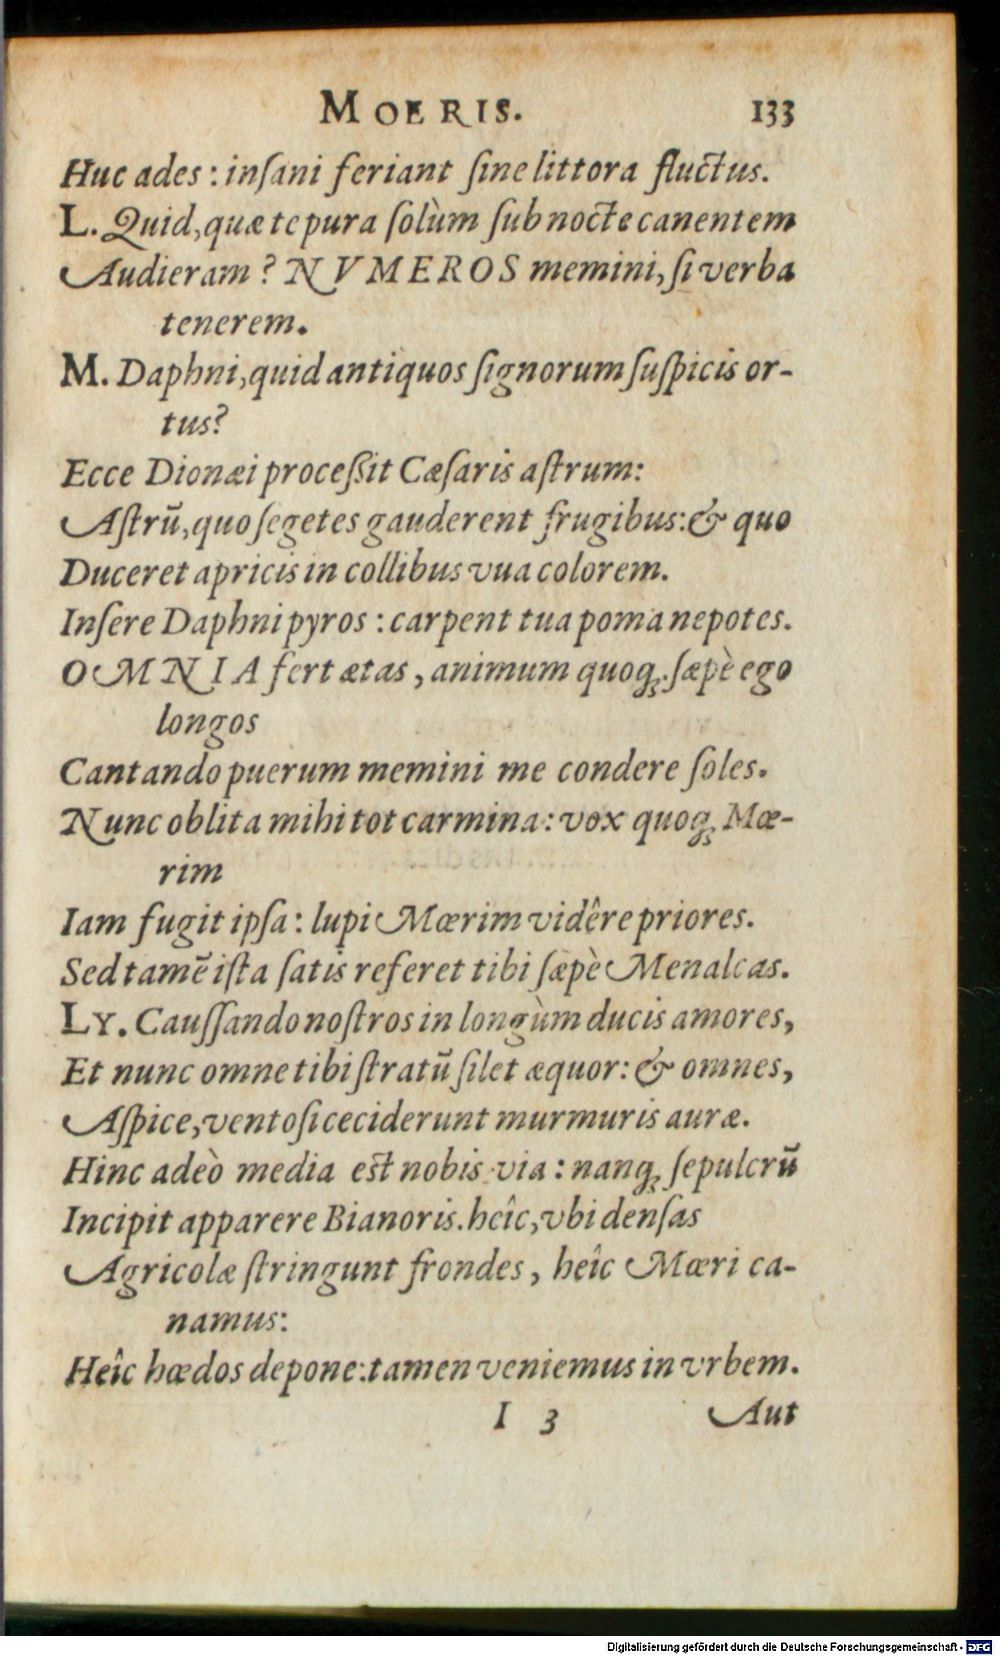 MOERIS. 133
Huc ades: inſani feriant ſine littora fluctus.
L. Quid, quæ te pura ſolùm ſub nocte canentem
Audieram? NVMEROS memini, ſi verba
tenerem.
M. Daphni, quid antiquos ſignorum ſuſpicis or-
tus?
Ecce Dionæi proceßit Cæſaris aſtrum:
Aſtrū, quo ſegetes gauderent frugibus: & quo
Duceret apricis in collibus vua colorem.
Inſere Daphni pyros: carpent tua poma nepotes.
OMNIA fert ætas, animum quoq;. ſæpè ego
longos
Cantando puerum memini me condere ſoles.
Nunc oblita mihi tot carmina: vox quoq; Mœ-
rim
Iam fugit ipſa: lupi Mœrim vidêre priores.
Sed tamē iſta ſatis referet tibi ſæpè Menalcas.
LY. Cauſſando noſtros in longùm ducis amores,
Et nunc omne tibi ſtratū ſilet æquor: & omnes,
Aſpice, ventoſi ceciderunt murmuris auræ.
Hinc adeò media est nobis via: nanq; ſepulcrū
Incipit apparere Bianoris. heîc, vbi denſas
Agricolæ ſtringunt frondes, heîc Mœri ca-
namus:
Heîc hœdos depone: tamen veniemus in vrbem.
I 3 Aut
Digitalisierung gefördert durch die Deutsche Forschungsgemeinschaft - DFG